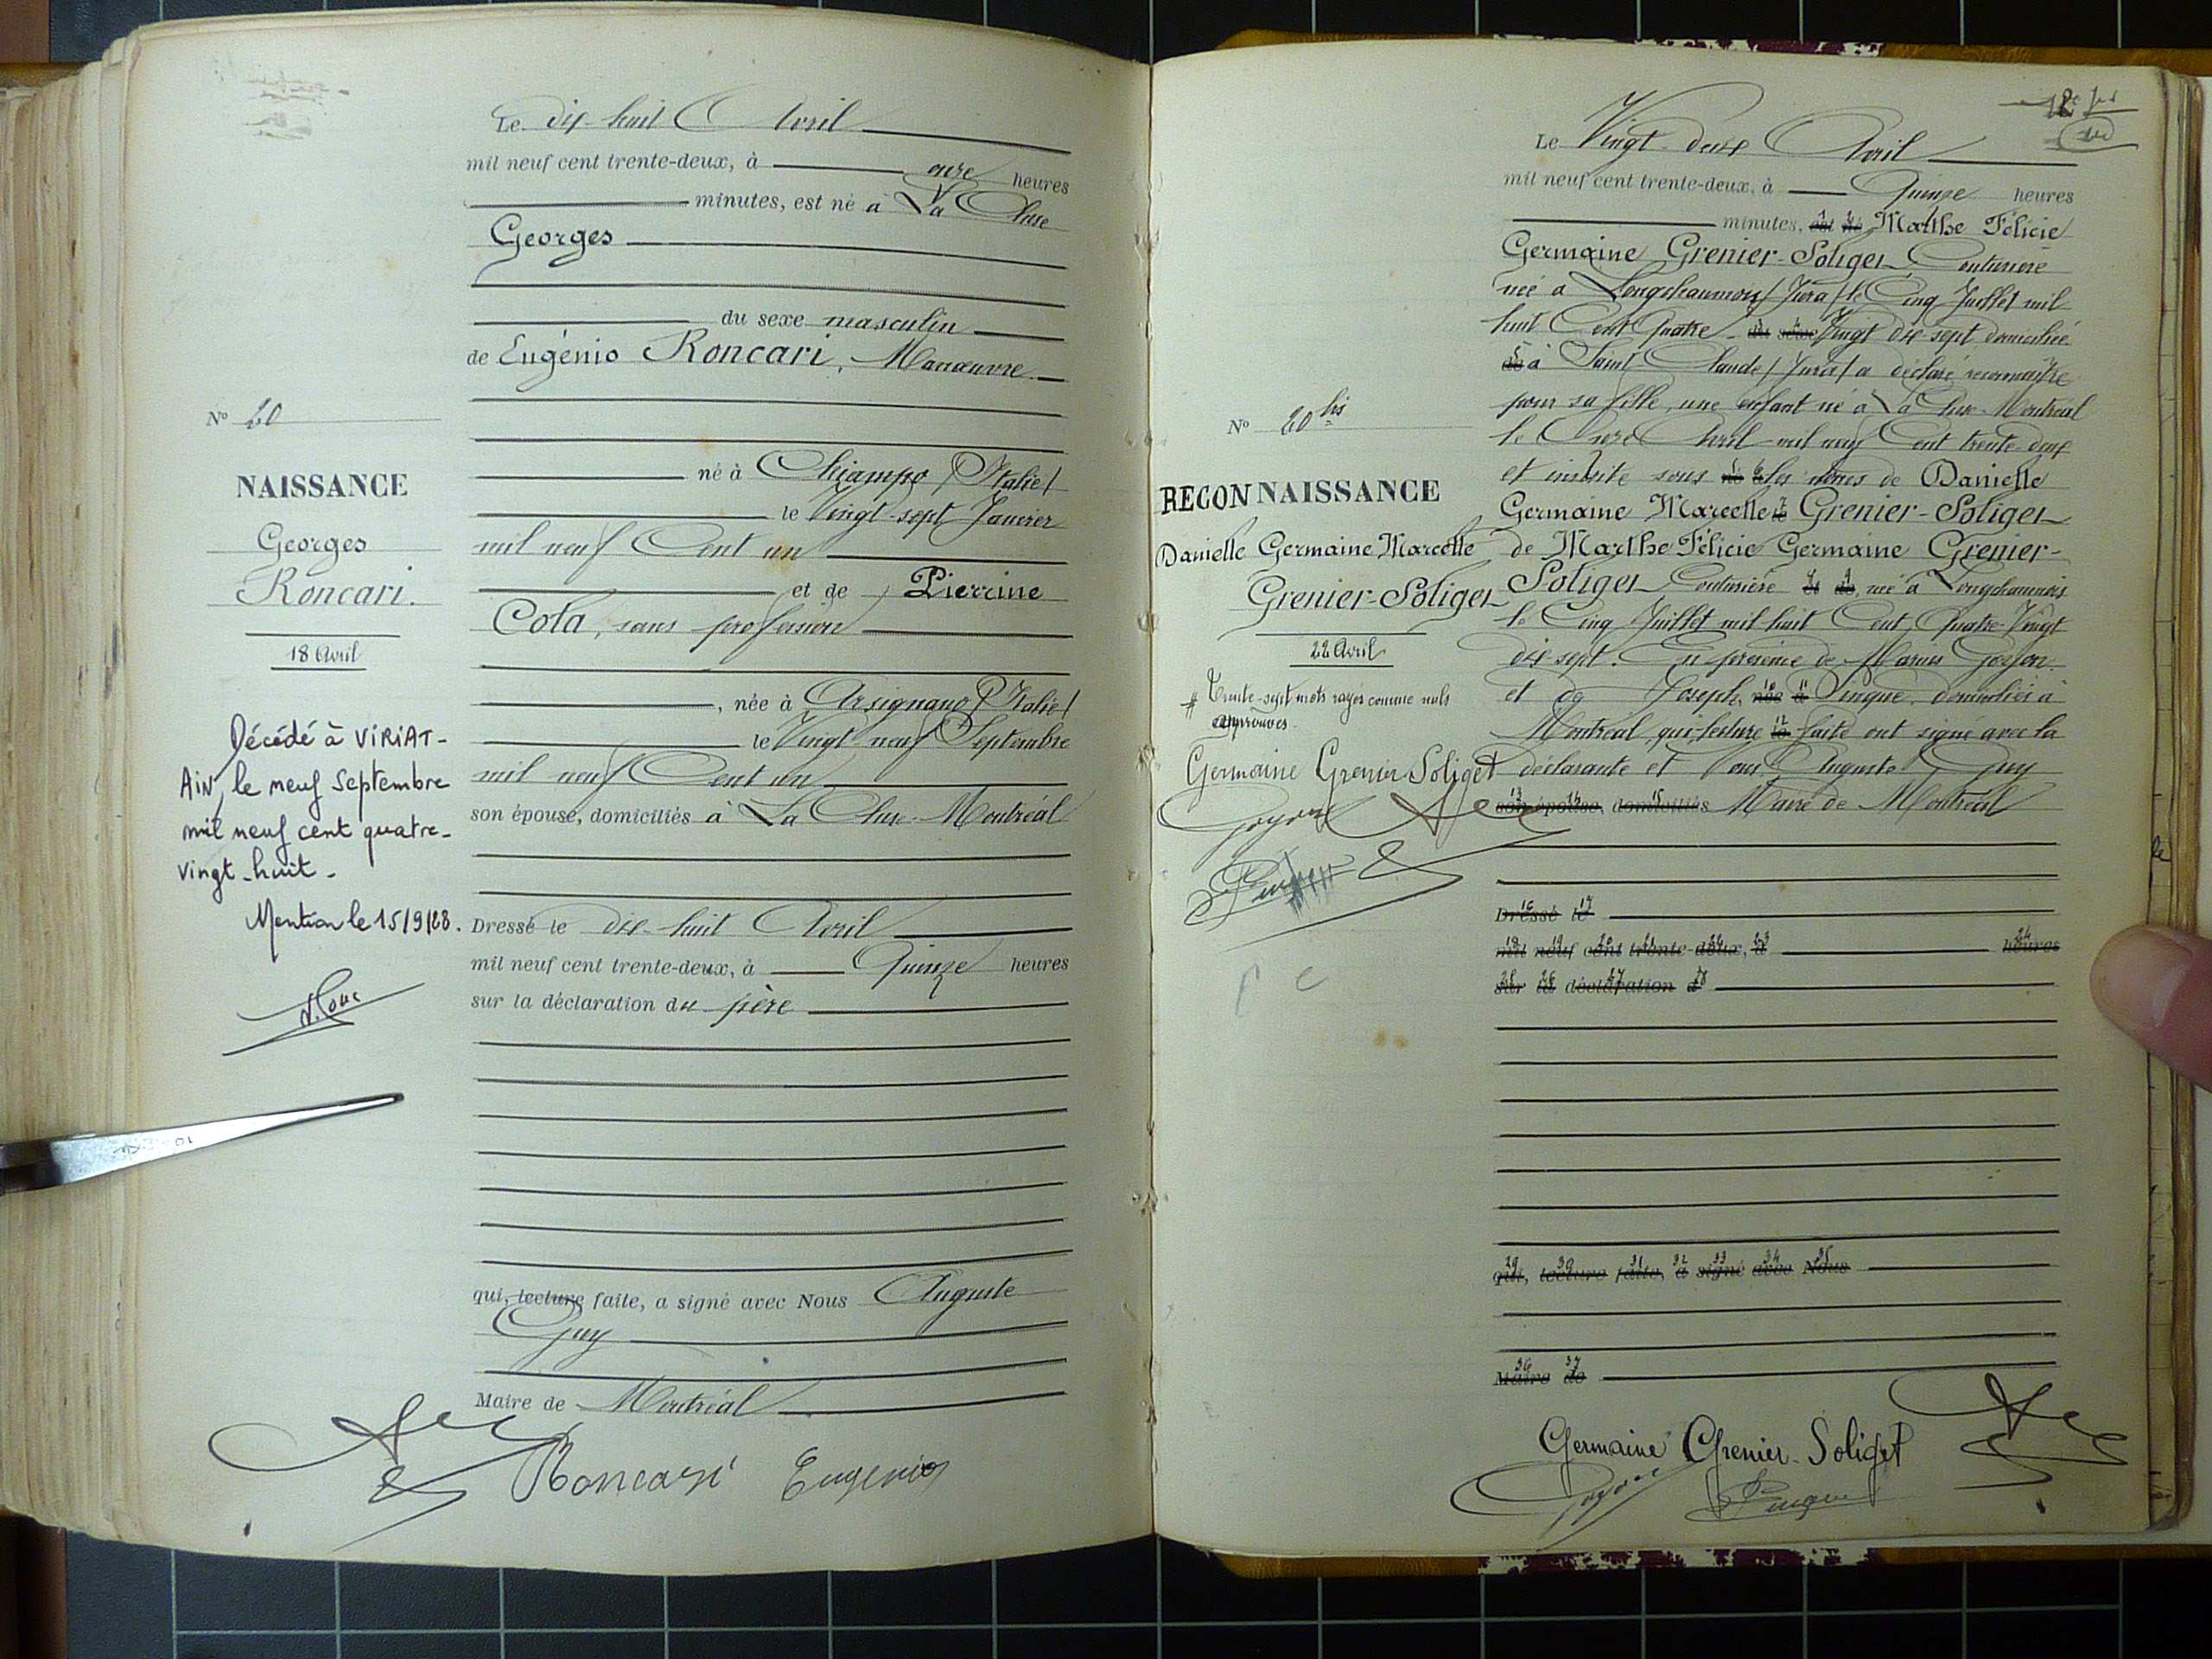 Le dix-huit Avril
mil neuf cent trente-deux, à onze heures
minutes, est né à La Cluse
Georges
du sexe masculin
de Eugénio Roncari, Manœuvre
né à Chiampo (Italie)
le Vingt-sept Janvier
mil neuf Cent un
et de Pierrine
Cola, sans profession
, née à Arsignano (Italie)
le Vingt-neuf Septembre
mil neuf Cent un
son épouse, domiciliés à La Cluse-Montréal
Dressé le dix-huit Avril
mil neuf cent trente-deux, à Quinze heures
sur la déclaration du père
qui, lecture faite, a signé avec Nous Auguste
Guy
Maire de Montréal
Roncari Eugenio
N° 20
NAISSANCE
Georges
Roncari.
18 Avril
Décédé à VIRIAT-
AIN, le neuf Septembre
mil neuf cent quatre-
vingt-huit-
Mention le 15/9/88.
Le Vingt-deux Avril
mil neuf cent trente-deux, à Quinze heures
minutes, est né Marthe Félicie
Germaine Grenier-Soliget Couturière
née à Longchaumois (Jura) le Cinq Juillet mil
huit Cent Quatre du sexe Vingt dix-sept domiciliée
de à Saint-Claude (Jura) a déclaré reconnaître
pour sa fille, une enfant né à La Cluse-Montréal
le Onze Avril mil neuf Cent trente-deux
et inscrite sous né à les noms de Danielle
Germaine Marcelle le Grenier-Soliget
de Marthe Félicie Germaine Grenier-
Soliget Couturière et de, née à Longchaumois
le Cinq Juillet mil huit Cent Quatre-Vingt
dix-sept. En présence de Marius Goyon
et de Joseph, née à Pingue, domiciliés à
Montréal qui, lecture le faite ont signé avec la
déclarante et Nous Auguste Guy
son épouse, domiciliés Maire de Montréal
Dressé le
mil neuf cent trente-deux, à heures
sur la déclaration d
qui, lecture faite, a signé avec Nous
Maire de
Germaine Grenier-Soliget
Goyon Pingue
N° 20 bis
RECONNAISSANCE
Danielle Germaine Marcelle
Grenier-Soliget
22 Avril
# Trente-sept mots rayés comme nuls
approuvés.
Germaine Grenier Soliget
Goyon